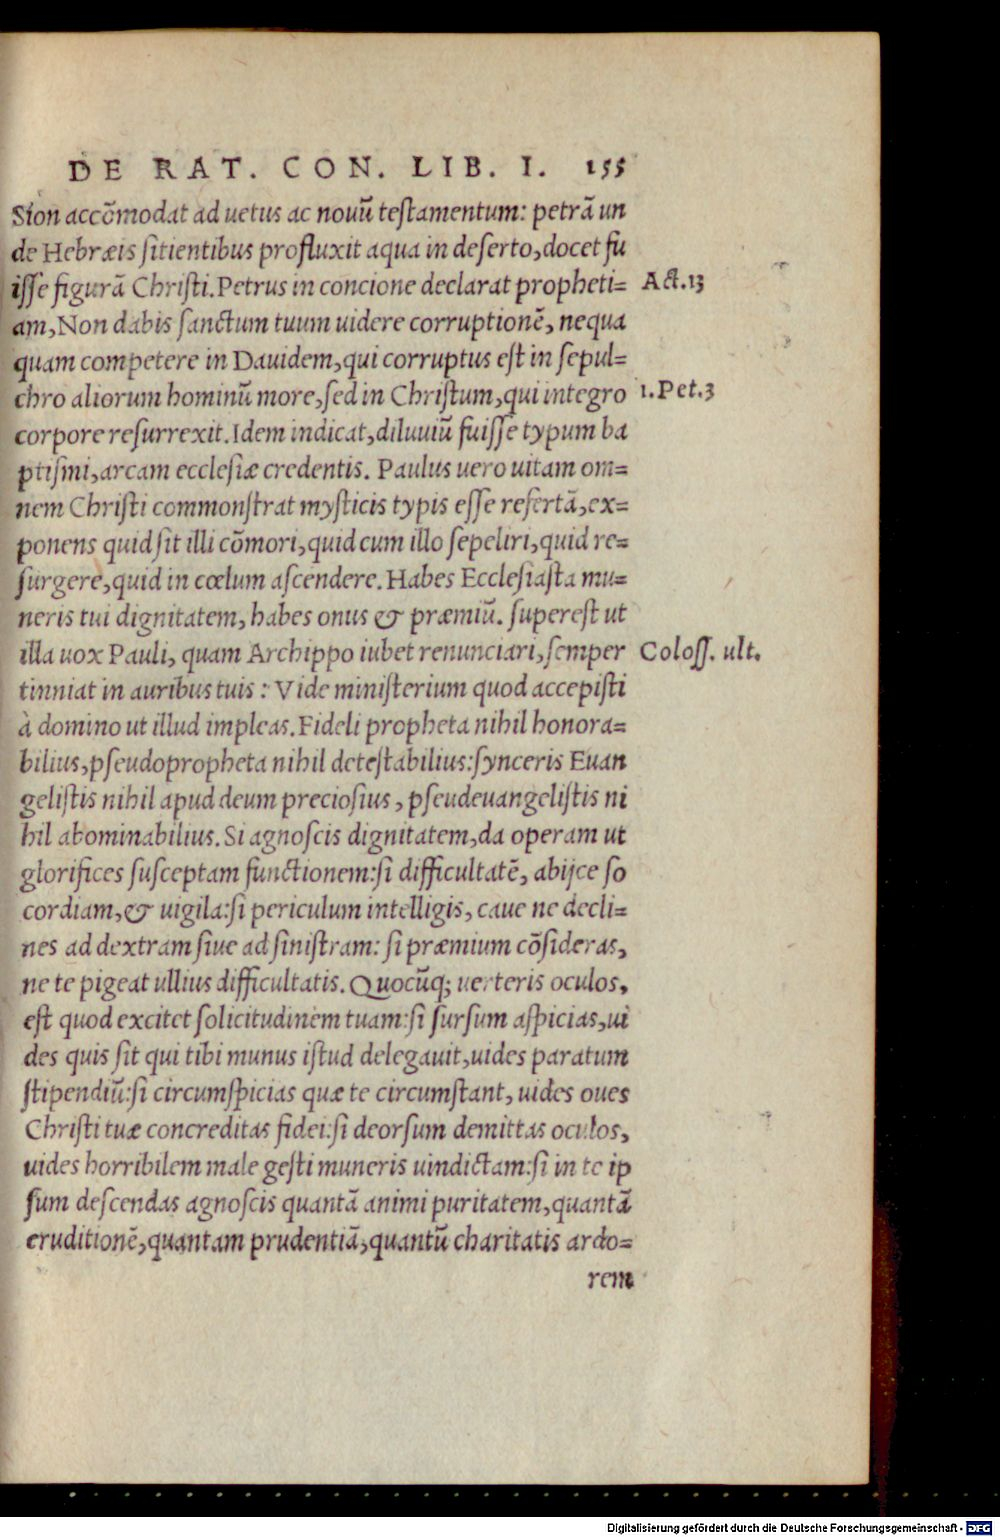 DE RAT. CON. LIB. I. 155
Sion accõmodat ad uetus ac nouũ testamentum: petrã un
de Hebræis sitientibus profluxit aqua in deserto, docet fu
isse figurã Christi. Petrus in concione declarat propheti= Act.13
am, Non dabis sanctum tuum uidere corruptionẽ, nequa
quam competere in Dauidem, qui corruptus est in sepul=
chro aliorum hominũ more, sed in Christum, qui integro 1.Pet.3
corpore resurrexit. Idem indicat, diluuiũ fuisse typum ba
ptismi, arcam ecclesiæ credentis. Paulus uero uitam om=
nem Christi commonstrat mysticis typis esse refertã, ex=
ponens quid sit illi cõmori, quid cum illo sepeliri, quid re=
surgere, quid in cœlum ascendere. Habes Ecclesiasta mu=
neris tui dignitatem, habes onus & præmiũ. superest ut
illa uox Pauli, quam Archippo iubet renunciari, semper Coloss. ult.
tinniat in auribus tuis: Vide ministerium quod accepisti
à domino ut illud impleas. Fideli propheta nihil honora=
bilius, pseudopropheta nihil detestabilius: synceris Euan
gelistis nihil apud deum preciosius, pseudeuangelistis ni
hil abominabilius. Si agnoscis dignitatem, da operam ut
glorifices susceptam functionem: si difficultatẽ, abijce so
cordiam, & uigila: si periculum intelligis, caue ne decli=
nes ad dextram siue ad sinistram: si præmium cõsideras,
ne te pigeat ullius difficultatis. Quocũq; uerteris oculos,
est quod excitet solicitudinem tuam: si sursum aspicias, ui
des quis sit qui tibi munus istud delegauit, uides paratum
stipendiũ: si circumspicias quæ te circumstant, uides oues
Christi tuæ concreditas fidei: si deorsum demittas oculos,
uides horribilem male gesti muneris uindictam: si in te ip
sum descendas agnoscis quantã animi puritatem, quantã
eruditionẽ, quantam prudentiã, quantũ charitatis ardo=
rem
Digitalisierung gefördert durch die Deutsche Forschungsgemeinschaft - DFG